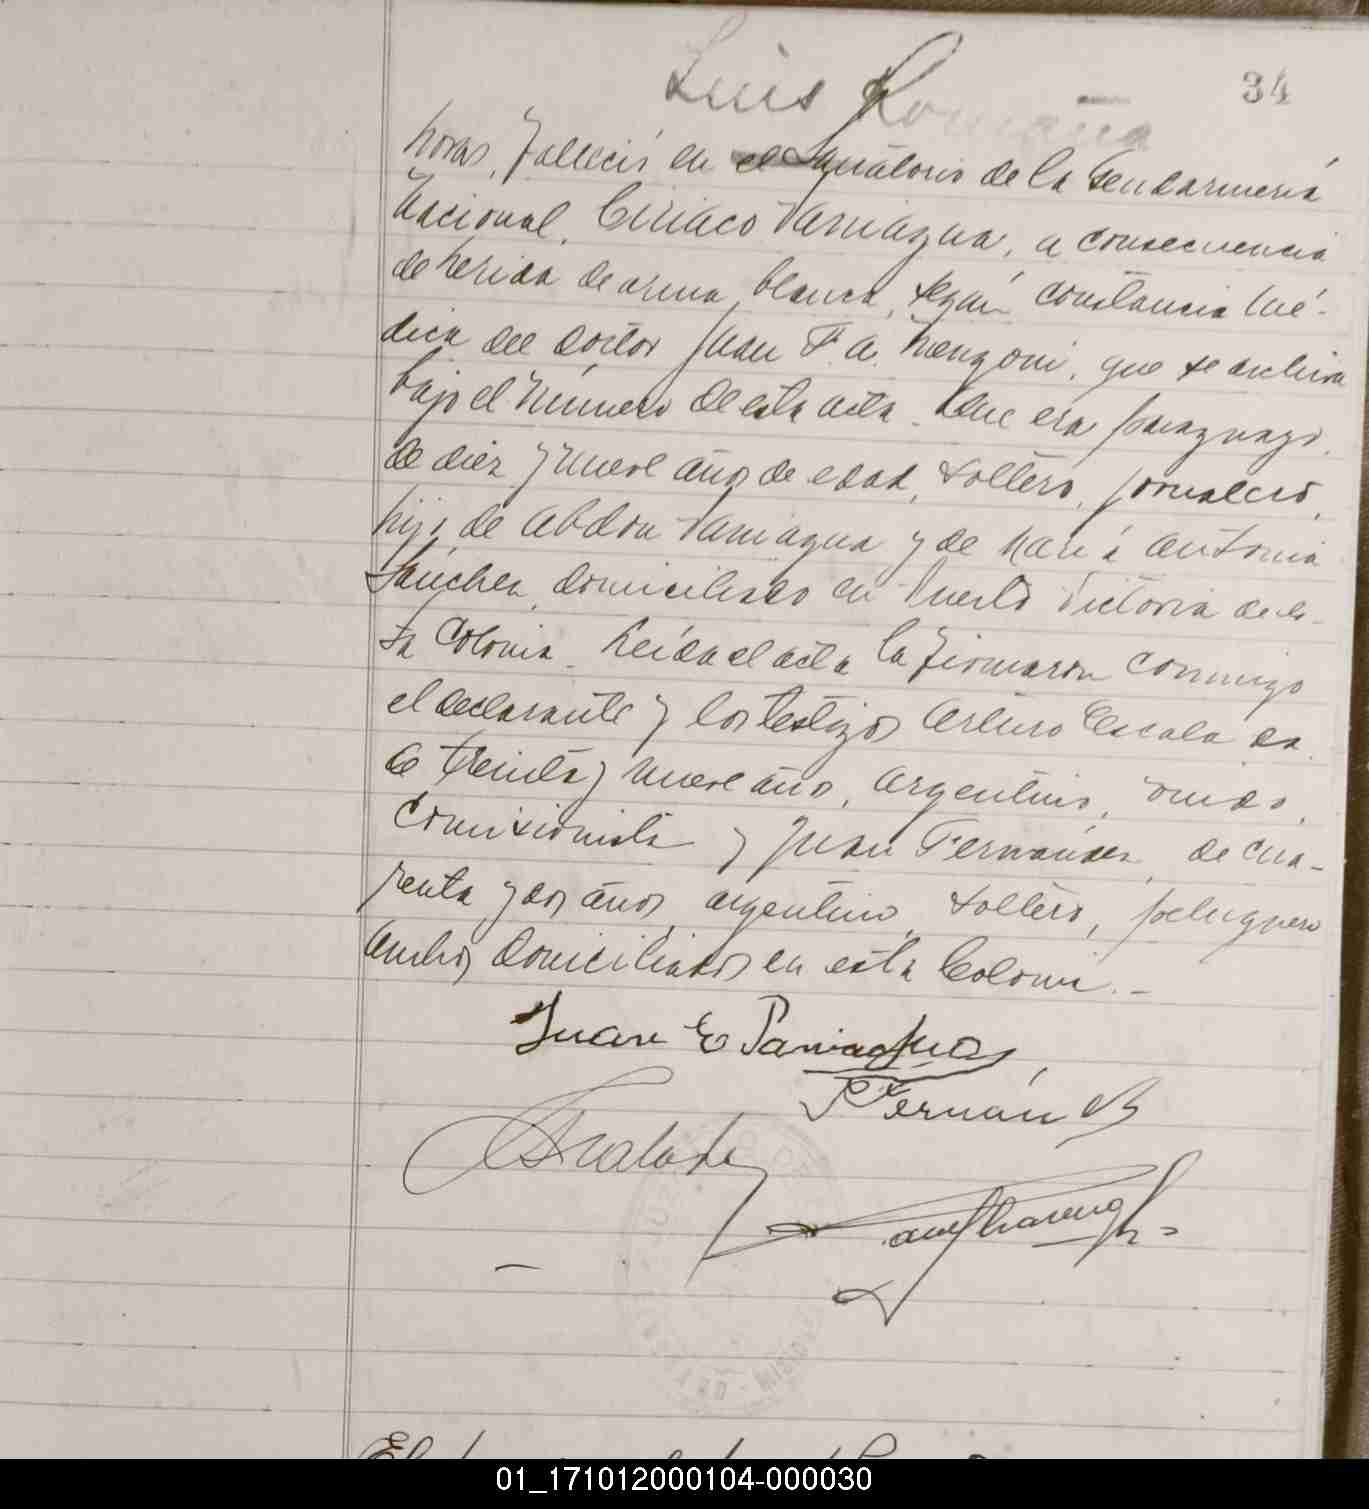 34
Luis Romaña
horas, falleció en el Sanatorio de la Gendarmeria
Nacional, Ciriaco Paniagua, a consecuencia
de herida de arma blanca, según constancia mé-
dica del doctor Juan F. A. Menzoni, que se archiva
bajo el número de esta acta. Que era paraguayo,
de diez y nueve años de edad, soltero, jornalero,
hijo de Abdon Paniagua y de Maria Antonia
Sánchez, domiciliado en Puerto Victoria de es-
ta Colonia. Leída el acta la firmaron conmigo
el declarante y los testigos Arturo Escala da
de treinta y nueve años, argentino, viudo,
comisionista y Juan Fernández, de cua-
renta y dos años, argentino, soltero, peluquero
ambos domiciliados en esta Colonia.-
Juan E Paniagua
J Fernández
MISIONES
El
01_171012000104-000030